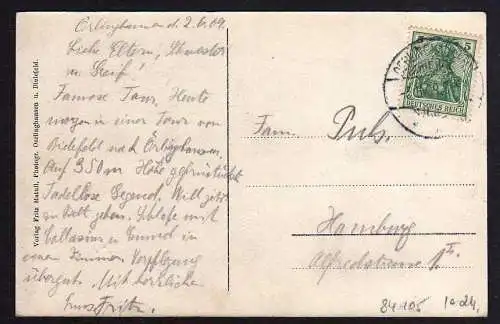 Örlinghausen d. 2.6.09.
Liebe Eltern, Schwester
u. Greif!
Famose Tour. Heute
morgen in einer Tour von
Bielefeld nach Örlinghausen.
Auf 350 m Höhe gefrühstückt.
Tadellose Gegend. Will jetzt
zu Bett gehen. Schlafe mit
u. in
einem Zimmer. Verpflegung
. Mit herzlichem
Gruss Fritz.
Verlag Fritz Photogr. Oerlinghausen u. Bielefeld.
5
DEUTSCHES REICH
Fam.
Hamburg
Alfredstrasse
84105